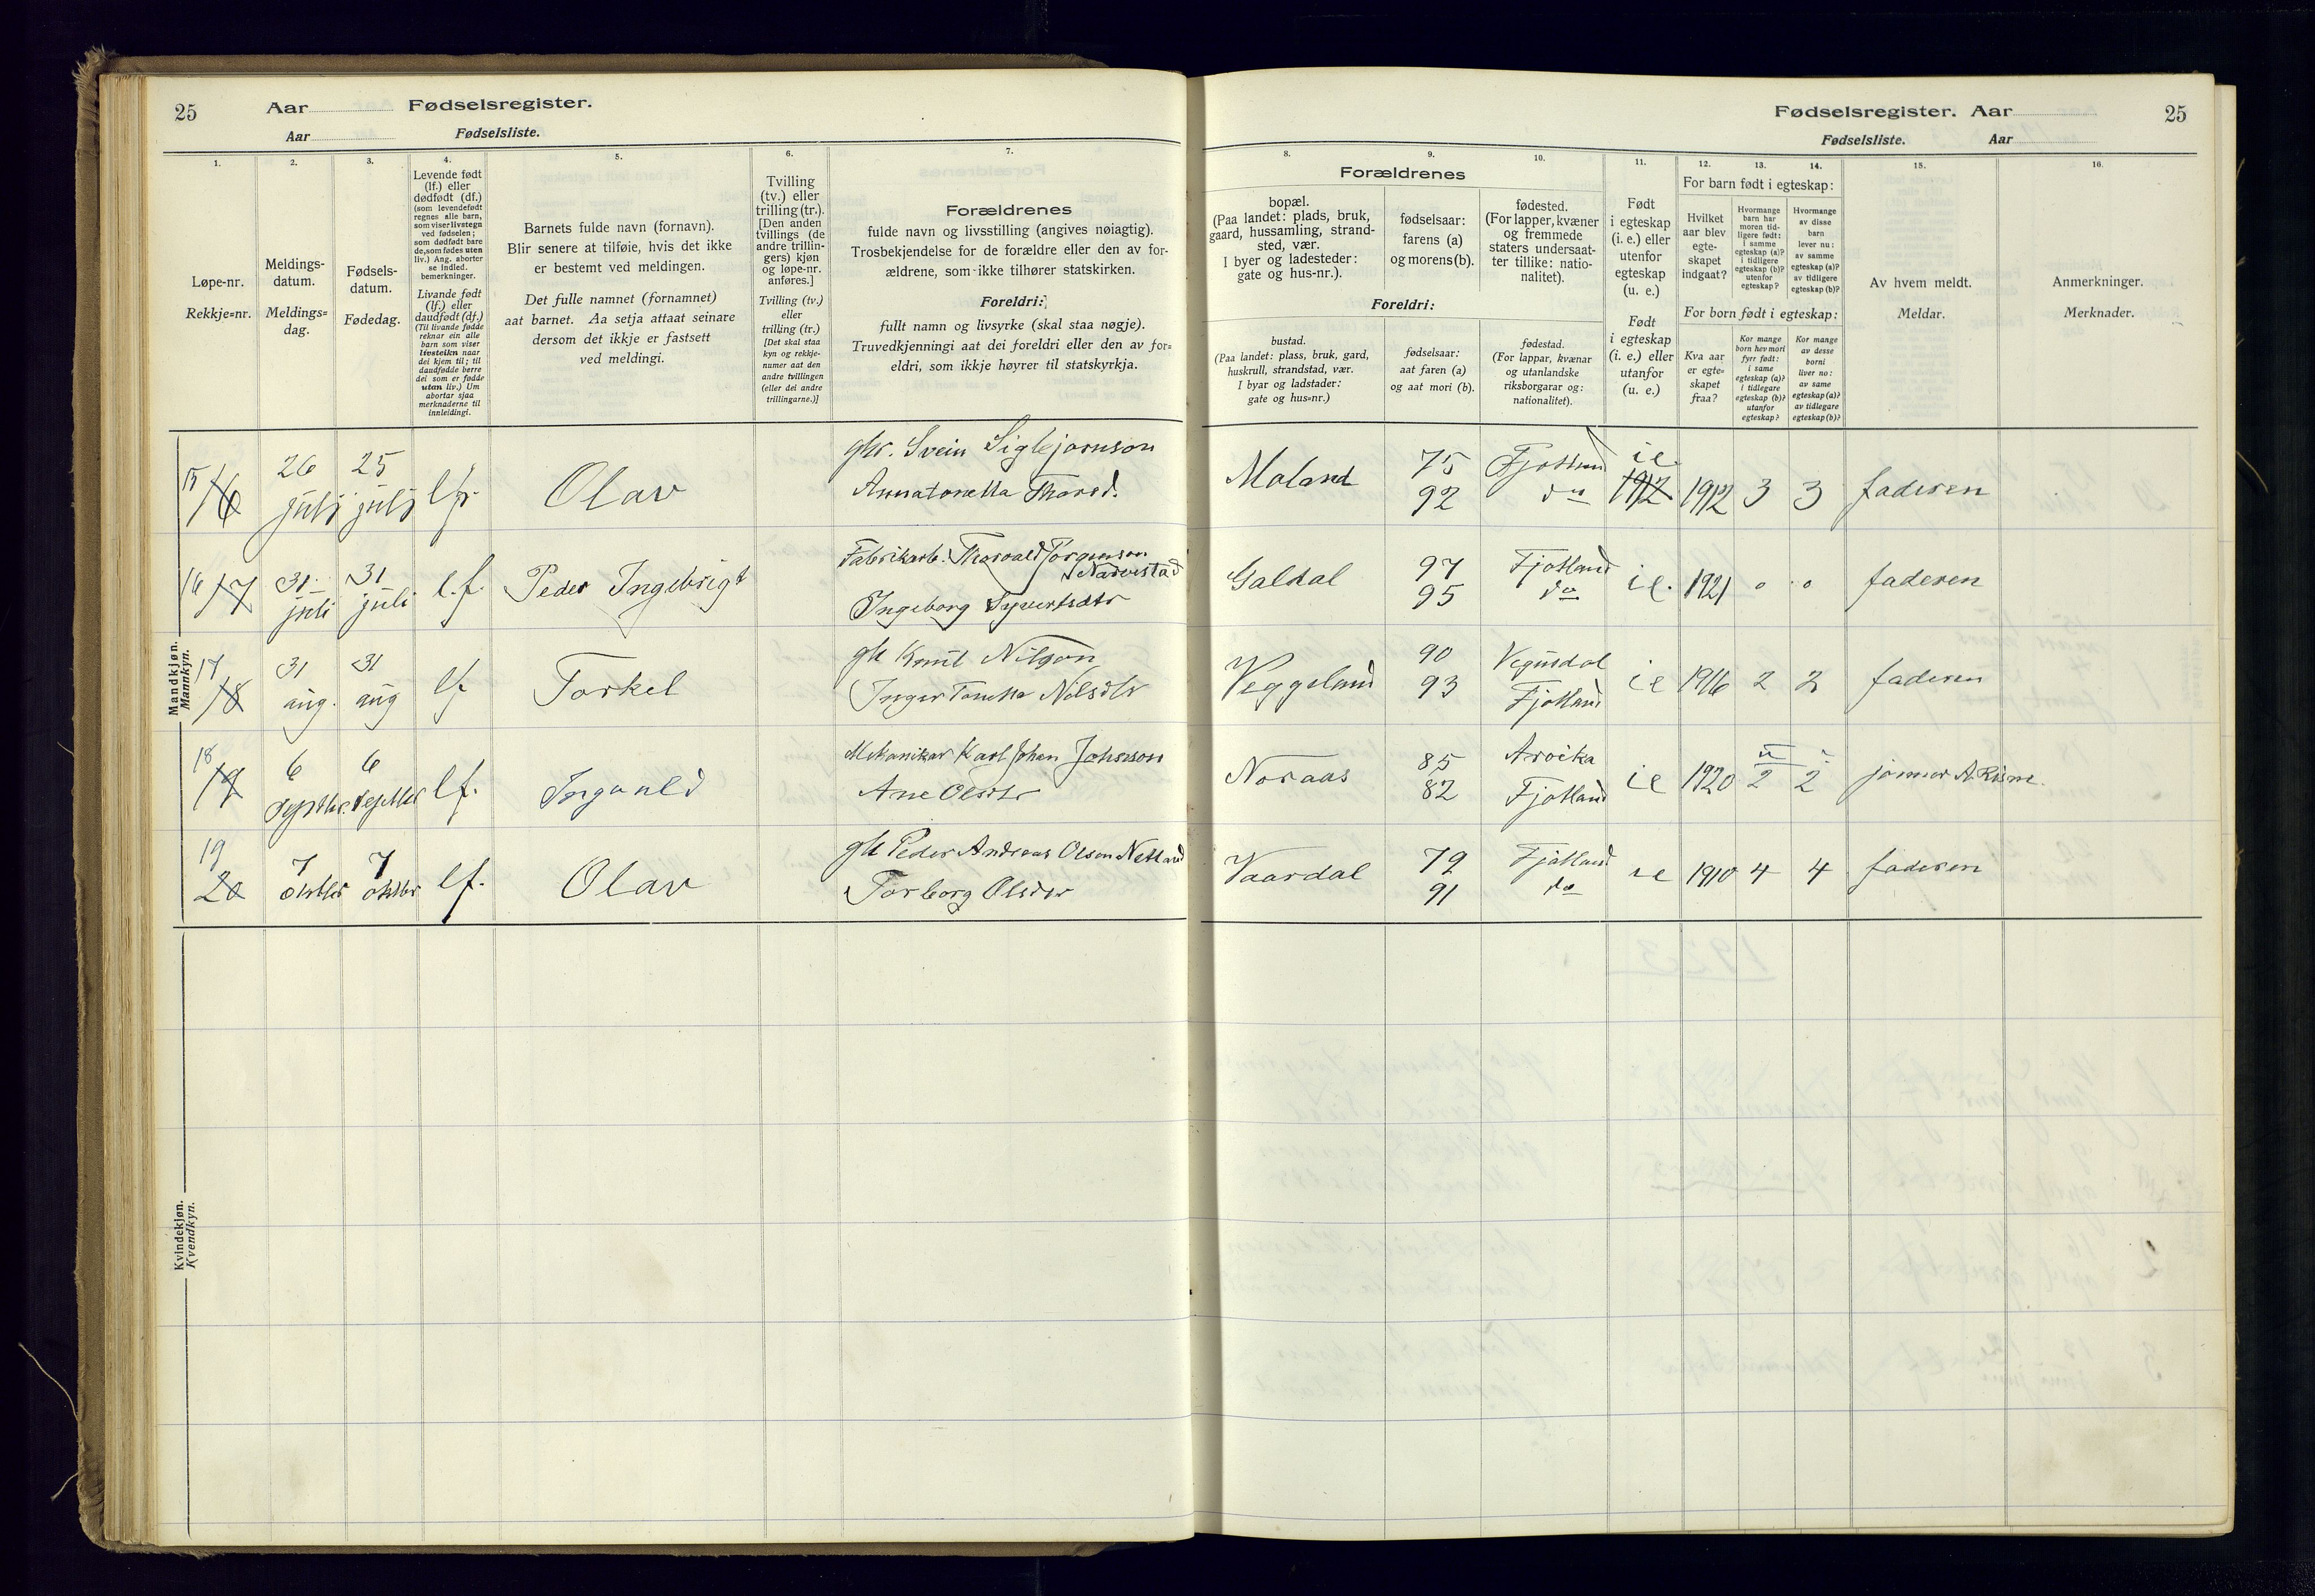 25
Aar
Fødselsregister.
Aar
Fødselsliste.
1.
Løpe-nr.
Rekkje=nr.
2.
Meldings-
datum.
Meldings=
dag.
3.
Fødsels-
datum.
Fødedag.
4.
Levende født
(lf.) eller
dødfødt (df.)
(som levendefødt
regnes alle barn,
som viser livstegn
ved fødselen;
som dødfødt bare
de, som fødes uten
liv.) Ang. aborter
se indled.
bemerkninger.
Livande født
(lf.) eller
daudfødt (df.)
(Til livande fødde
reknar ein alle
barn som viser
livsteikn naar
dei kjem til; til
daudfødde berre
dei som er fødde
utan liv.) Um
abortar sjaa
merknaderne til
innleidingi.
5.
Barnets fulde navn (fornavn).
Blir senere at tilføie, hvis det ikke
er bestemt ved meldingen.
Det fulle namnet (fornamnet)
aat barnet. Aa setja attaat seinare
dersom det ikkje er fastsett
ved meldingi.
6.
Tvilling
(tv.) eller
trilling (tr.).
[Den anden
tvillings (de
andre trillin-
gers) kjøn
og løpe-nr.
anføres.]
Tvilling (tv.)
eller
trilling (tr.)
[Det skal staa
kyn og rekkje-
numer aat den
andre tvillingen
(eller dei andre
trillingarne.)]
7.
Forældrenes
fulde navn og livsstilling (angives nøiagtig).
Trosbekjendelse for de forældre eller den av for-
ældrene, som ikke tilhører statskirken.
Foreldri:
fullt namn og livsyrke (skal staa nøgje).
Truvedkjenningi aat dei foreldri eller den av for=
eldri, som ikkje høyrer til statskyrkja.
Fødselsregister. Aar
25
Fødselsliste.
Aar
Forældrenes
8.
bopæl.
(Paa landet: plads, bruk,
gaard, hussamling, strand-
sted, vær.
I byer og ladesteder:
gate og hus-nr.).
9.
fødselsaar:
farens (a)
og morens (b).
10.
fødested.
(For lapper, kvæner
og fremmede
staters undersaat-
ter tillike: natio-
nalitet).
Foreldri:
bustad.
(Paa landet: plass, bruk, gard,
huskrull, strandstad, vær.
I byar og ladstader:
gate og hus=nr.)
fødselsaar:
aat faren (a)
og aat mori (b).
fødestad.
(For lappar, kvænar
og utanlandske
riksborgarar og:
nationalitet).
11.
Født
i egteskap
(i. e.) eller
utenfor
egteskap
(u. e.)
Født
i egteskap
(i. e.) eller
utanfor
egteskap
(u. e.)
12.
13.
14.
For barn født i egteskap:
Hvilket
aar blev
egte-
skapet
indgaat?
Hvormange
barn har
moren tid-
ligere født:
i samme
egteskap (a)?
i tidligere
egteskap (b)?
utenfor
egteskap?
Hvormange
av disse
barn
lever nu:
av samme
egteskap (a)?
av tidligere
egteskap (b)?
For born født i egteskap:
Kva aar
er egte=
skapet
fraa?
Kor mange
born hev mori
fyrr født:
i same
egteskap (a)?
i tidlegare
egteskap (b)?
utanfor
egteskap?
Kor mange
av desse
borni
liver no:
av same
egteskap (a)?
av tidlegare
egteskap (b)?
15.
Av hvem meldt.
Meldar.
16.
Anmerkninger.
Merknader.
Mandkjøn.
Mannkyn.
15
16
26
juli
25
juli
lf.
Olav
gbr. Svein Sigbjørnson
Annatonetta Thored.
Moland
75
92
Fjotland
do
ie
1912
1912
3
3
faderen
16
17
31
juli
31
juli
l.f.
Peder Ingebrigt
Fabrikarb. Thorvald Jørgenson
Narvestad
Ingeborg Syvertsdtr
Galdal
97
95
Fjotland
do
ie.
1921
0
0
faderen
17
18
31
aug.
31
aug
lf
Torkel
gbr Knut Nilson
Inger Tonetta Nilsdtr
Veggeland
90
93
Vegusdal
Fjotland
ie
1916
2
2
faderen
18
19
6
Septbr.
6
Septbr
lf.
Ingvald
Mekaniker Karl Johan Johnsson
Ane Olsdtr
Noraas
85
82
Arvika
Fjotland
ie
1920
2
2
19
20
7
oktbr
7
oktbr
lf.
Olav
gbr Peder Andreas Olsen Netland
Torborg Olsdtr
Vaardal
79
91
Fjotland
do
ie
1910
4
4
faderen
Kvindekjøn.
Kvendkyn.